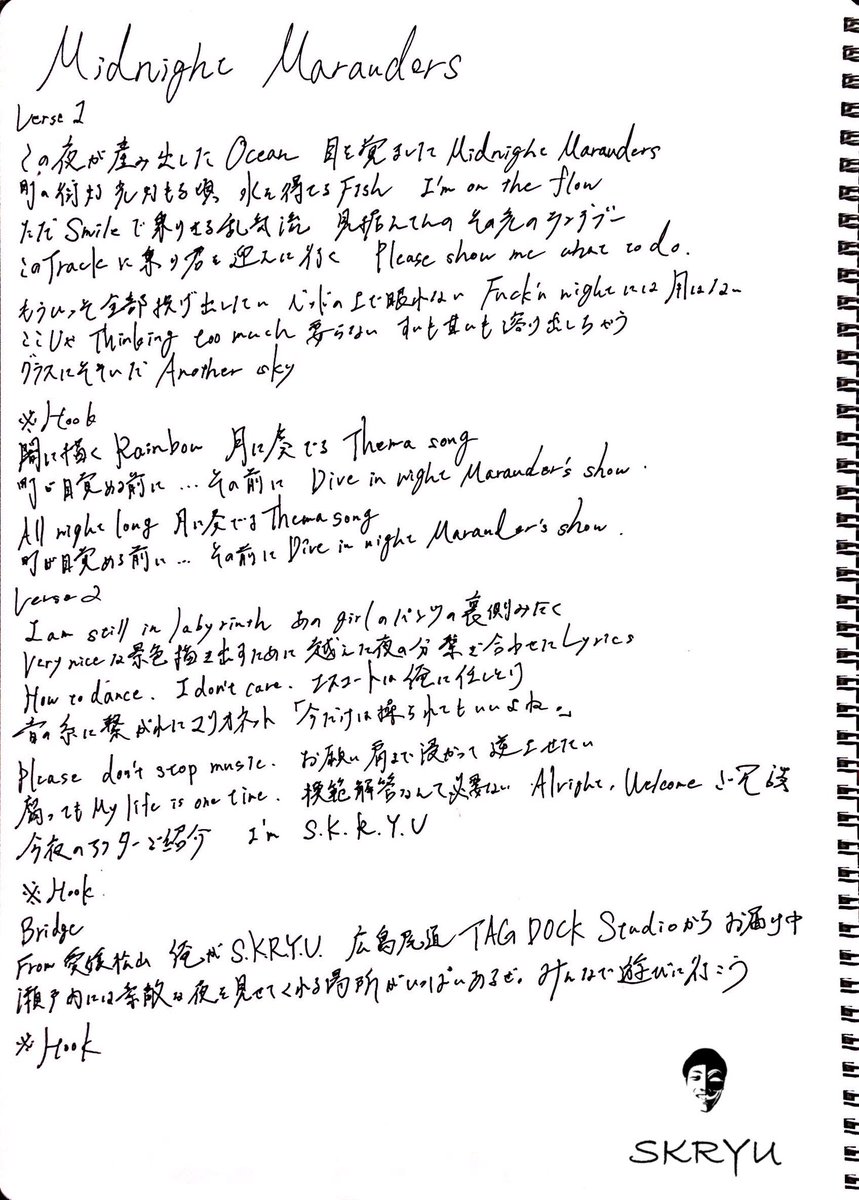 Midnight Marauders
Verse 1
この夜が産み出した Ocean 目を覚ました Midnight Marauders
町の街灯 も頃 水を得てる Fish I'm on the flow
ただ Smile で乗りせる乱気流 見据えてんの その先のランデブー
このTrackに乗り君を迎えに行く Please show me what to do.
もういっそ全部投げ出したい ベッドの上で眠れない Fuck'n nightには用はない
ここじゃ Thinking too much 要らない すいも甘いも溶け出しちゃう
グラスにそそいだ Another sky
※Hook
闇に描く Rainbow 月に奏でる Thema song
町が目覚める前に…その前に Dive in night Marauder's show.
All night long 月に奏でる Thema song
町が目覚める前に…その前に Dive in night Marauder's show.
Verse 2
I am still in labyrinth あの girl のパンツの裏側みたく
Very niceな景色描き出すために 越えた夜の分 葉を合わせた Lyrics
How to dance. I don't care. エスコートは俺に任しとり
音の糸に繋がれたマリオネット「今だけは操られてもいいよね。」
Please don't stop music. お願い肩まで浸かって 逆上せたい
腐っても My life is one time. 模範解答なんて必要ない Alright, Welcome
今夜のアフターご紹介 I'm S.K.R.Y.U
※Hook
Bridge
From 愛媛松山 俺が S.K.R.Y.U. 広島尾道 TAG DOCK Studioから お届け中
瀬戸内には素敵な夜を見せてくれる場所がいっぱいあるぜ。みんなで遊びに行こう
※Hook
SKRYU